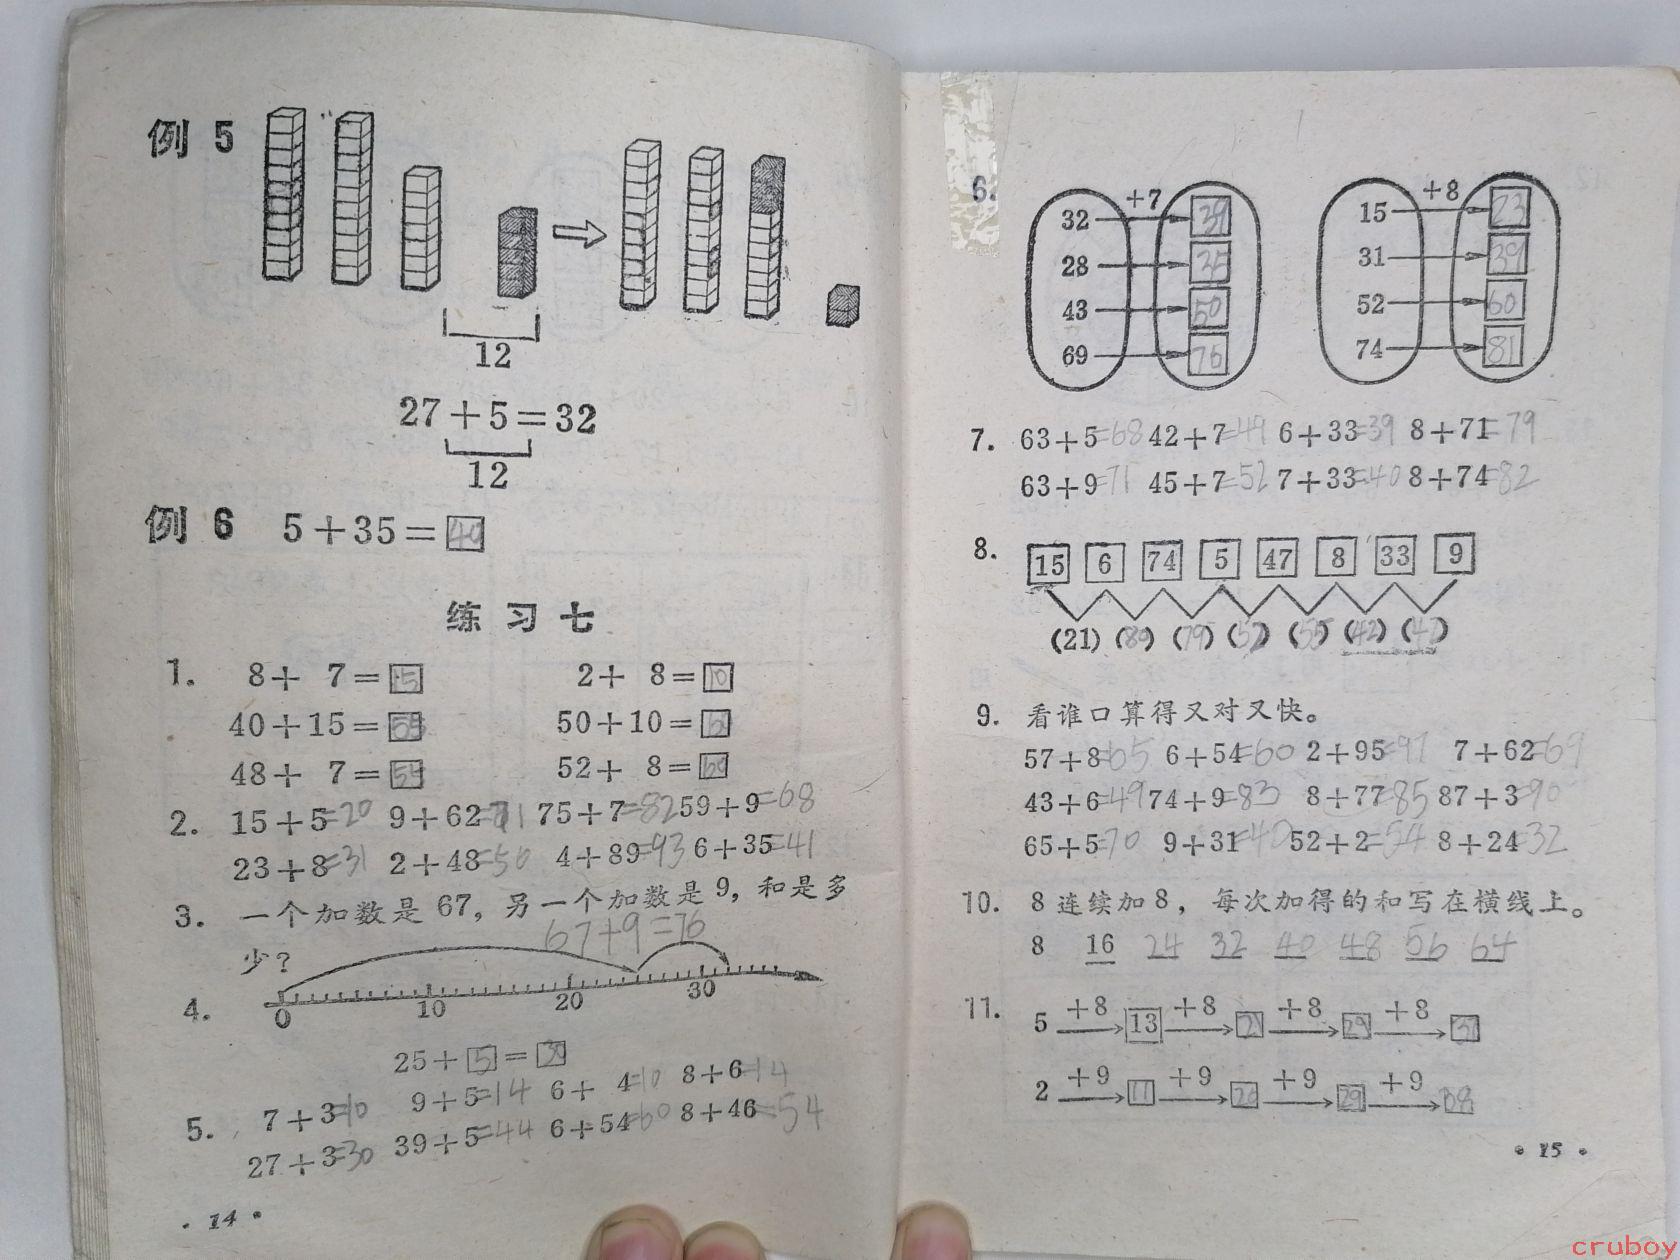 例 5
12
27+5=32
12
例 6 5+35=40
练习七
1. 8+ 7=15 2+ 8=10
40+15=55 50+10=
48+ 7=55 52+ 8=60
2. 15+5=20 9+62=71 75+7=82 59+9=68
23+8=31 2+48=50 4+89=93 6+35=41
3. 一个加数是 67, 另一个加数是 9, 和是多
少? 67+9=76
4. 0 10 20 30
25+5=30
5. 7+3=10 9+5=14 6+ 4=10 8+6=14
27+3=30 39+5=44 6+54=60 8+46=54
· 14 ·
6. +7 +8
32 39 15 23
28 35 31 39
43 50 52 60
69 76 74 81
7. 63+5=68 42+7=49 6+33=39 8+71=79
63+9=71 45+7=52 7+33=40 8+74=82
8. 15 6 74 5 47 8 33 9
(21) (80) (79) (52) (55) (42) (42)
9. 看谁口算得又对又快。
57+8=65 6+54=60 2+95=97 7+62=69
43+6=49 74+9=83 8+77=85 87+3=90
65+5=70 9+31=40 52+2=54 8+24=32
10. 8 连续加 8, 每次加得的和写在横线上。
8 16 24 32 40 48 56 64
11. +8 +8 +8 +8
5 13 21 29 37
+9 +9 +9 +9
2 11 20 29 38
· 15 ·
cruboy